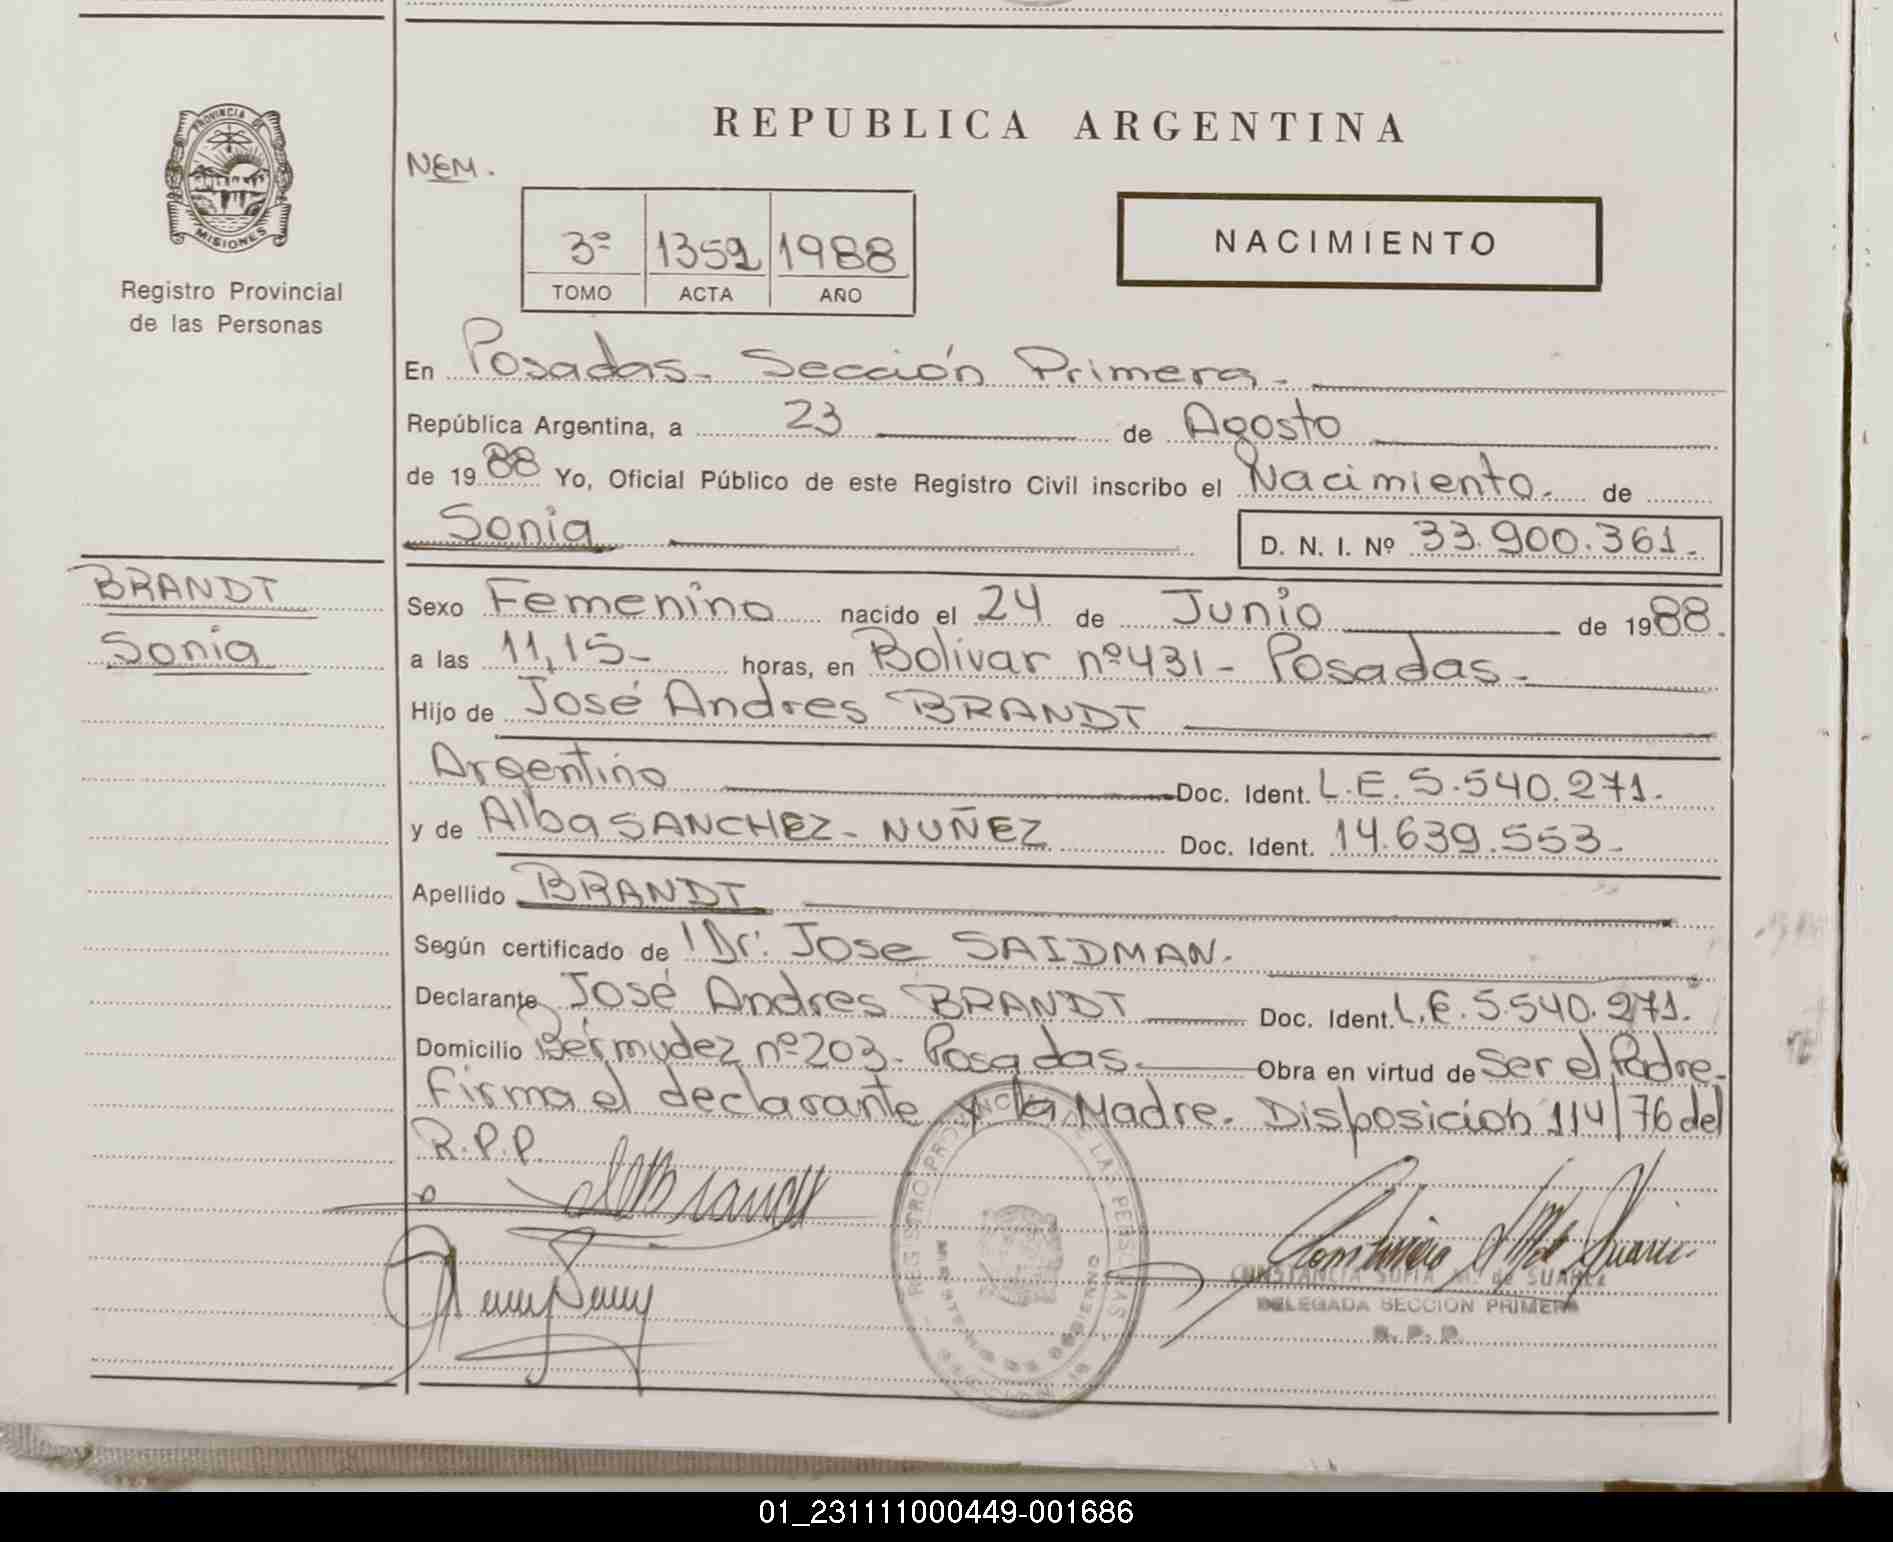 REPUBLICA ARGENTINA
NEM.
PROVINCIA DE
MISIONES
Registro Provincial
de las Personas
3º 1359 1988
TOMO ACTA AÑO
NACIMIENTO
En Posadas - Sección Primera -
República Argentina, a 23 de Agosto
de 1988 Yo, Oficial Público de este Registro Civil inscribo el Nacimiento. de
Sonia D. N. I. Nº 33.900.361.
BRANDT
Sonia
Sexo Femenino nacido el 24 de Junio de 1988.
a las 11,15- horas, en Bolivar nº431- Posadas-
Hijo de José Andres BRANDT
Argentino Doc. Ident. L.E. 5.540.271.
y de Alba SANCHEZ - NUÑEZ Doc. Ident. 14.639.553-
Apellido BRANDT
Según certificado de Dr. Jose SAIDMAN.
Declarante José Andres BRANDT Doc. Ident. L.E. 5.540.271.
Domicilio Bérmudez nº203- Posadas- Obra en virtud de Ser el Padre-
Firma el declarante y la Madre. Disposición 114/76 del
R.P.P.
REGISTRO PROVINCIAL DE LAS PERSONAS
MINISTERIO DE GOBIERNO
CONSTANCIA SOFIA M. de SUAREZ
DELEGADA SECCION PRIMERA
R. P. P.
01_231111000449-001686